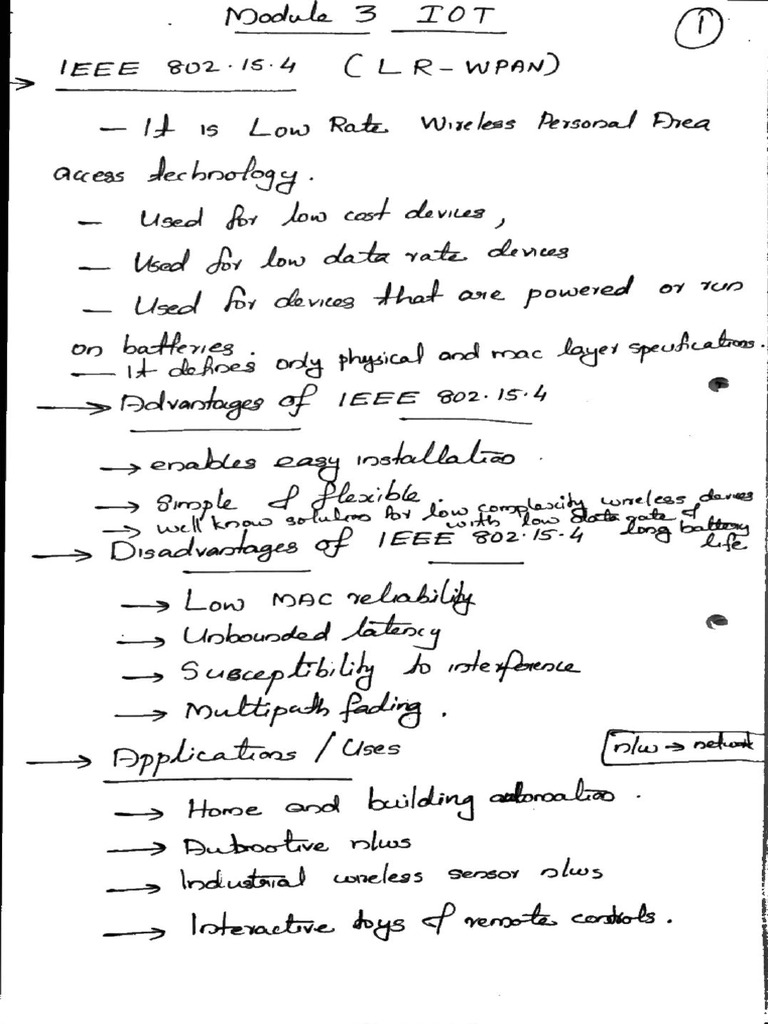 Module 3 IOT
1
IEEE 802.15.4 (LR-WPAN)
— It is Low Rate Wireless Personal Area
access technology.
— Used for low cost devices,
— Used for low data rate devices
— Used for devices that are powered or run
on batteries.
— It defines only physical and mac layer specifications.
→ Advantages of IEEE 802.15.4
→ enables easy installation.
→ Simple & flexible.
→ well know solution for low complexity wireless devices
with low data rate & long battery
life
→ Disadvantages of IEEE 802.15.4
→ Low MAC reliability
→ Unbounded latency
→ Susceptibility to interference
→ Multipath fading.
→ Applications / Uses
n/w → network
→ Home and building automation.
→ n/ws
→ Industrial wireless sensor n/ws
→ Interactive toys & remote controls.